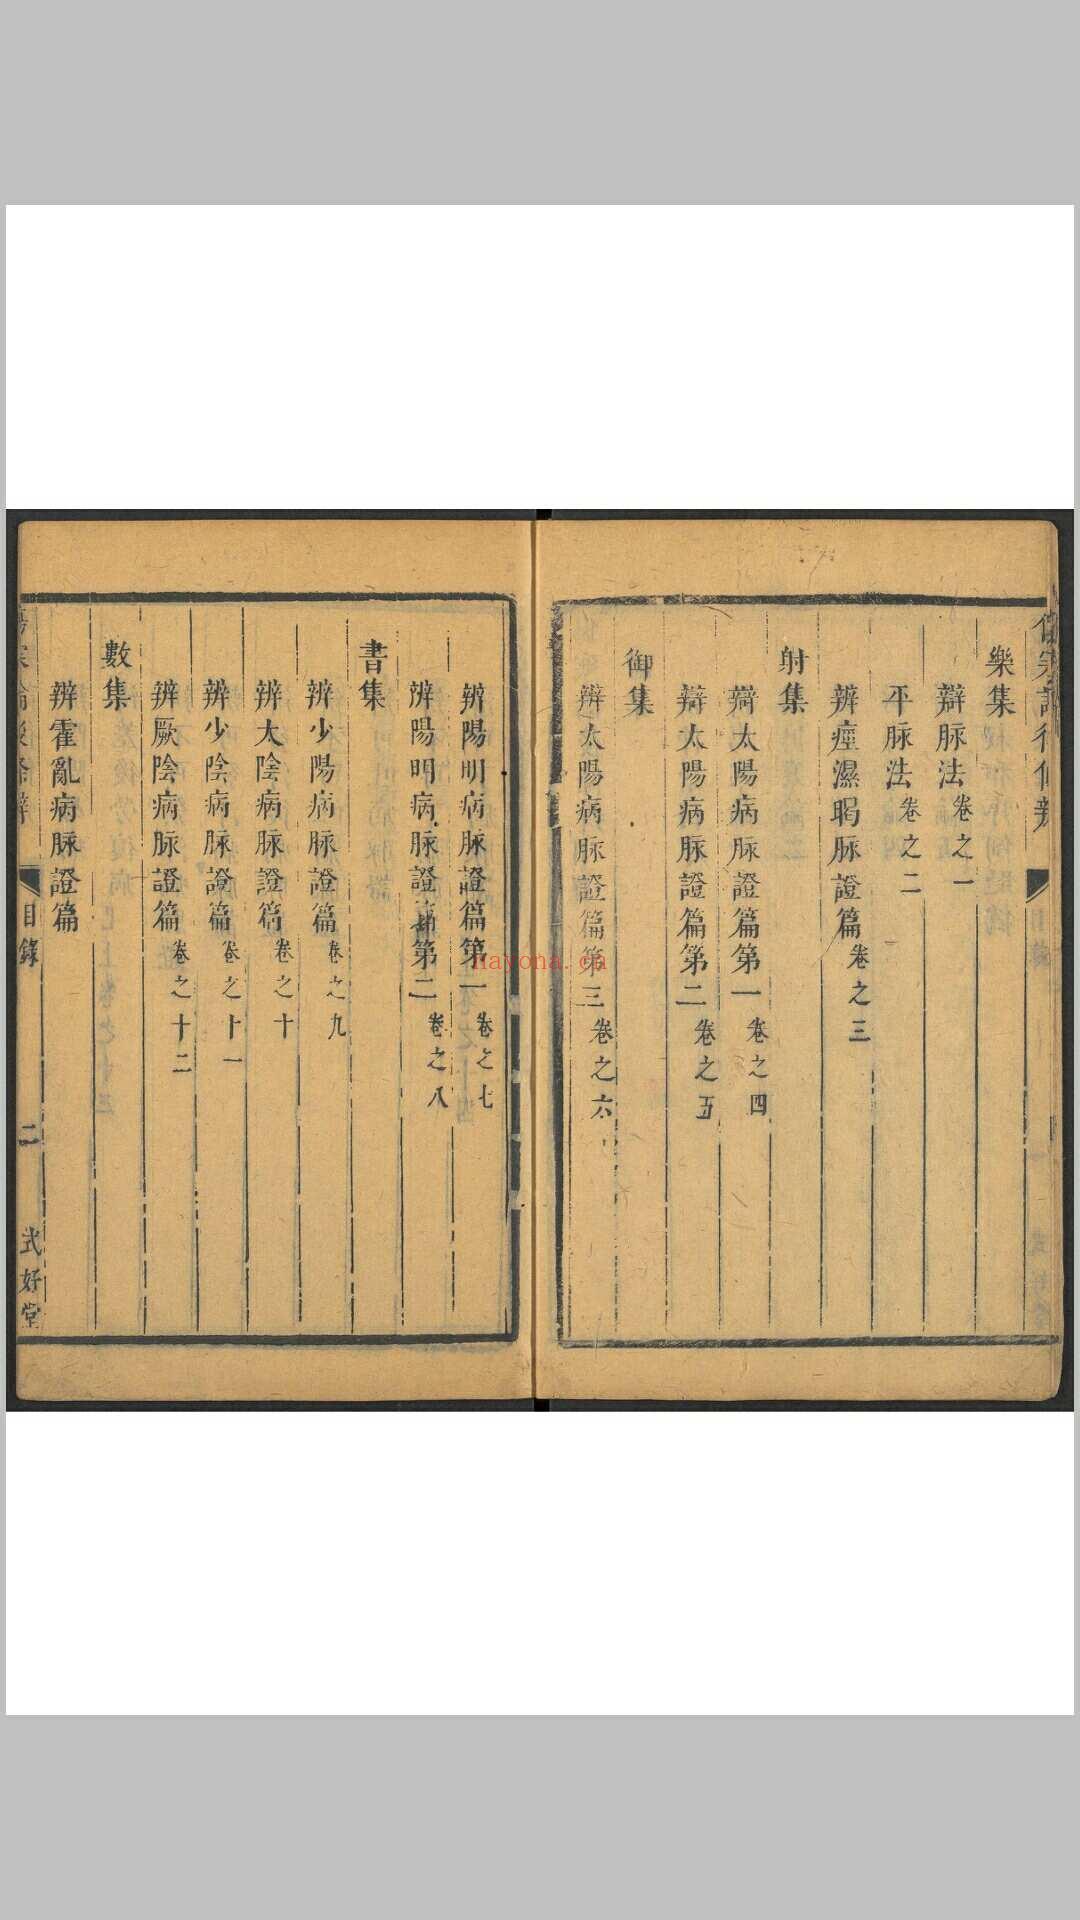 樂集
辯脉法卷之一
平脉法卷之二
辨痙濕暍脉證篇卷之三
射集
辯太陽病脉證篇第一卷之四
辯太陽病脉證篇第二卷之五
御集
辨太陽病脉證篇第三卷之六
辨陽明病脉證篇第一卷之七
辨陽明病脉證篇第二卷之八
書集
辨少陽病脉證篇卷之九
辨太陰病脉證篇卷之十
辨少陰病脉證篇卷之十一
辨厥陰病脉證篇卷之十二
數集
辨霍亂病脉證篇
目錄
二
式好堂
nayona.cn